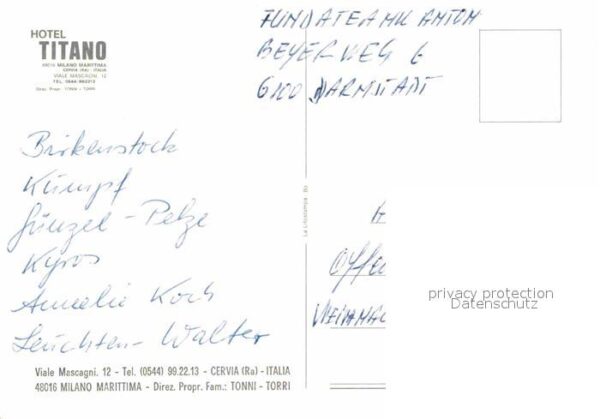 HOTEL
TITANO
48016 MILANO MARITTIMA
CERVIA (Ra) - ITALIA
VIALE MASCAGNI, 12
TEL. 0544/992213
Direz. Propr. TONNI - TORRI
ANTON
BEYERWEG 6
6100 DARMSTADT
Birkenstock
Kümpf
Günzel - Pelze
Kyros
Annelie Koch
Leuchten - Walter
La Litostampa - Bo
Offen
privacy protection
Datenschutz
Viale Mascagni. 12 - Tel. (0544) 99.22.13 - CERVIA (Ra) - ITALIA
48016 MILANO MARITTIMA - Direz. Propr. Fam.: TONNI - TORRI